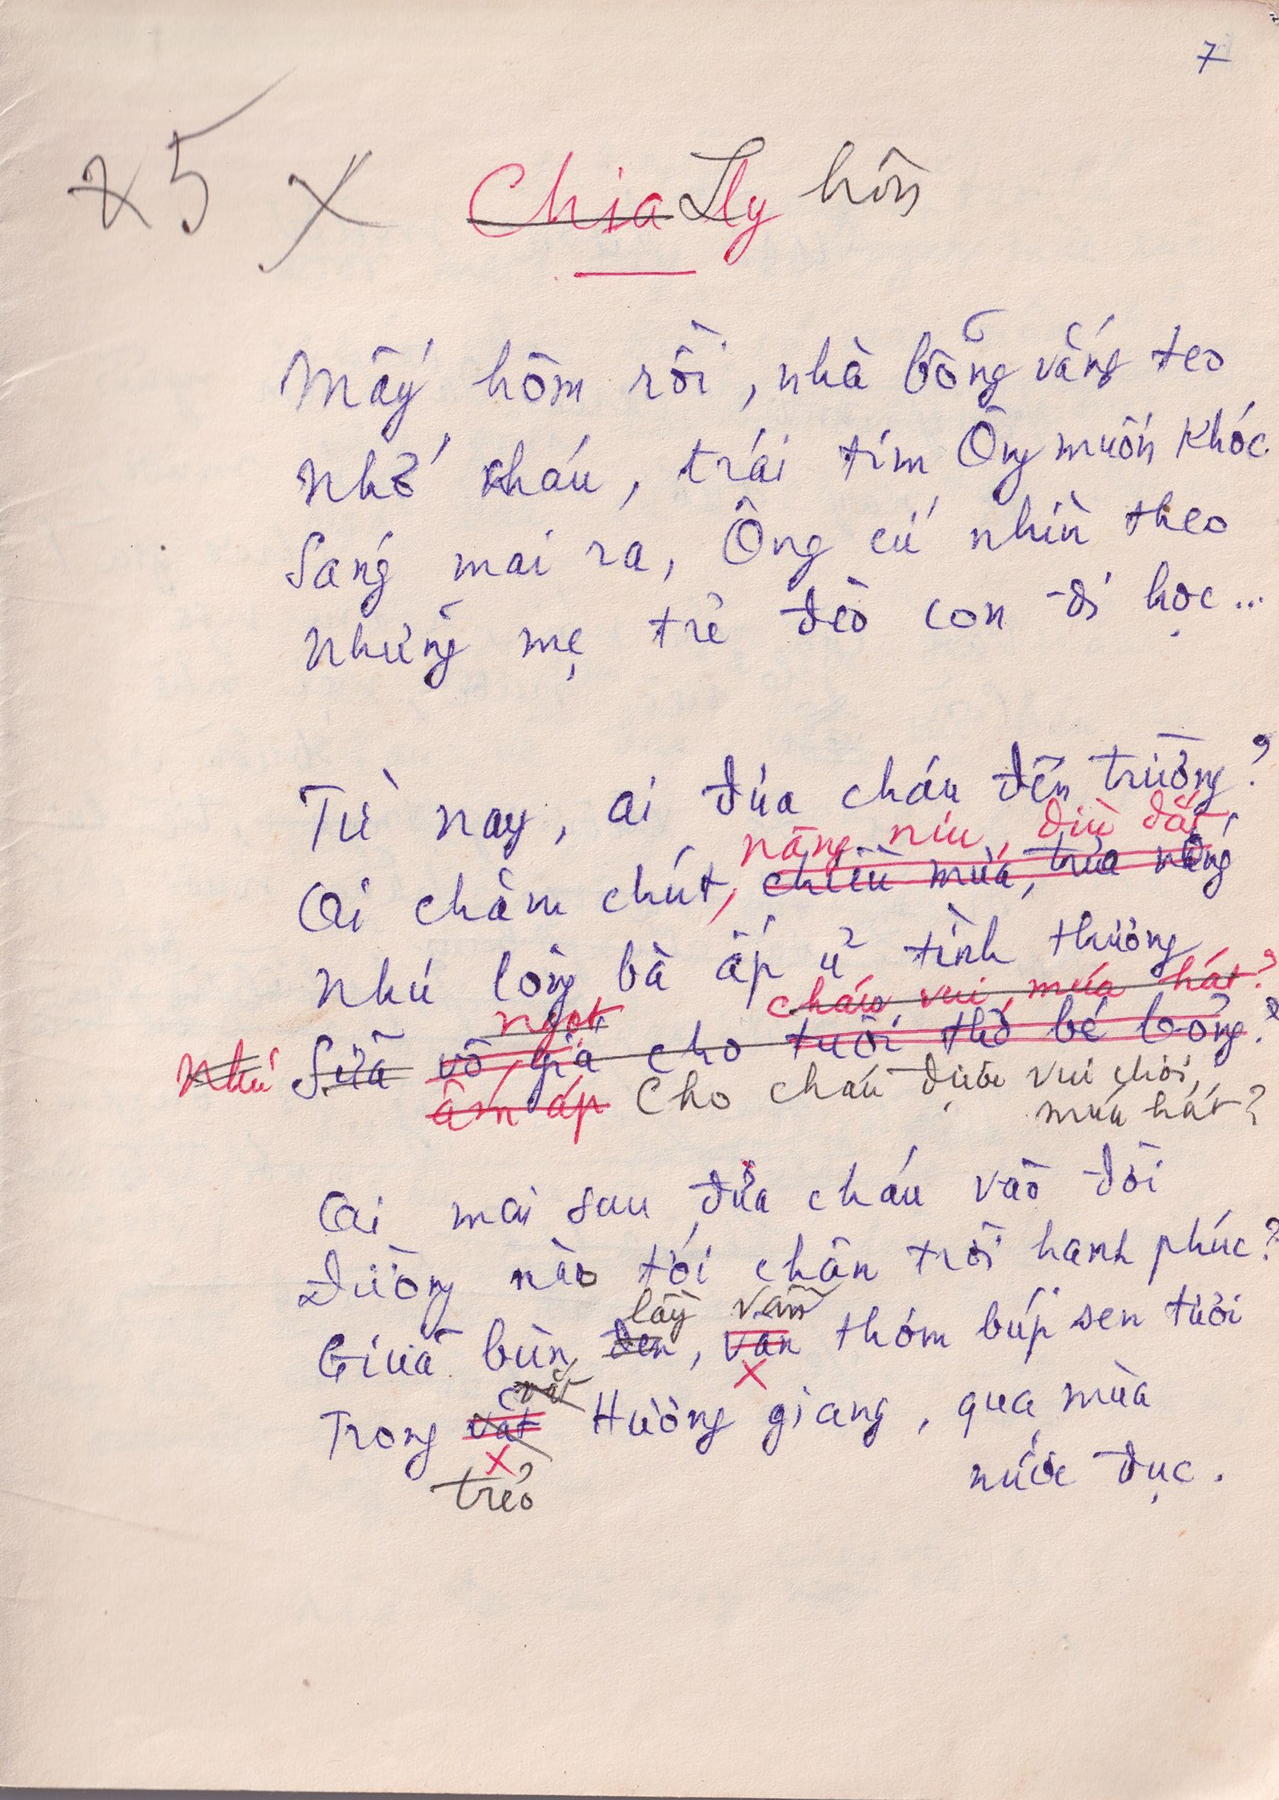 7
25 X Chia Ly hôn
Mấy hôm rồi, nhà bỗng vắng teo
Nhớ cháu, trái tim Ông muốn khóc.
Sáng mai ra, Ông cứ nhìn theo
Những mẹ trẻ đèo con đi học...
Từ nay, ai đưa cháu đến trường?
nâng niu, dìu dắt
Ai chăm chút, chiều mưa, trưa nắng
Như lòng bà ấp ủ tình thương
cháu vui múa hát?
ngọt
Như Sữa vô giá cho tuổi thơ bé bỏng?
ấm áp Cho cháu được vui chơi,
múa hát?
Ai mai sau đưa cháu vào đời
Đường nào tới chân trời hạnh phúc?
lầy vẫn
Giữa bùn đen, vẫn thơm búp sen tươi
vắt
Trong vắt Hương giang, qua mùa
X
nước đục.
trẻo